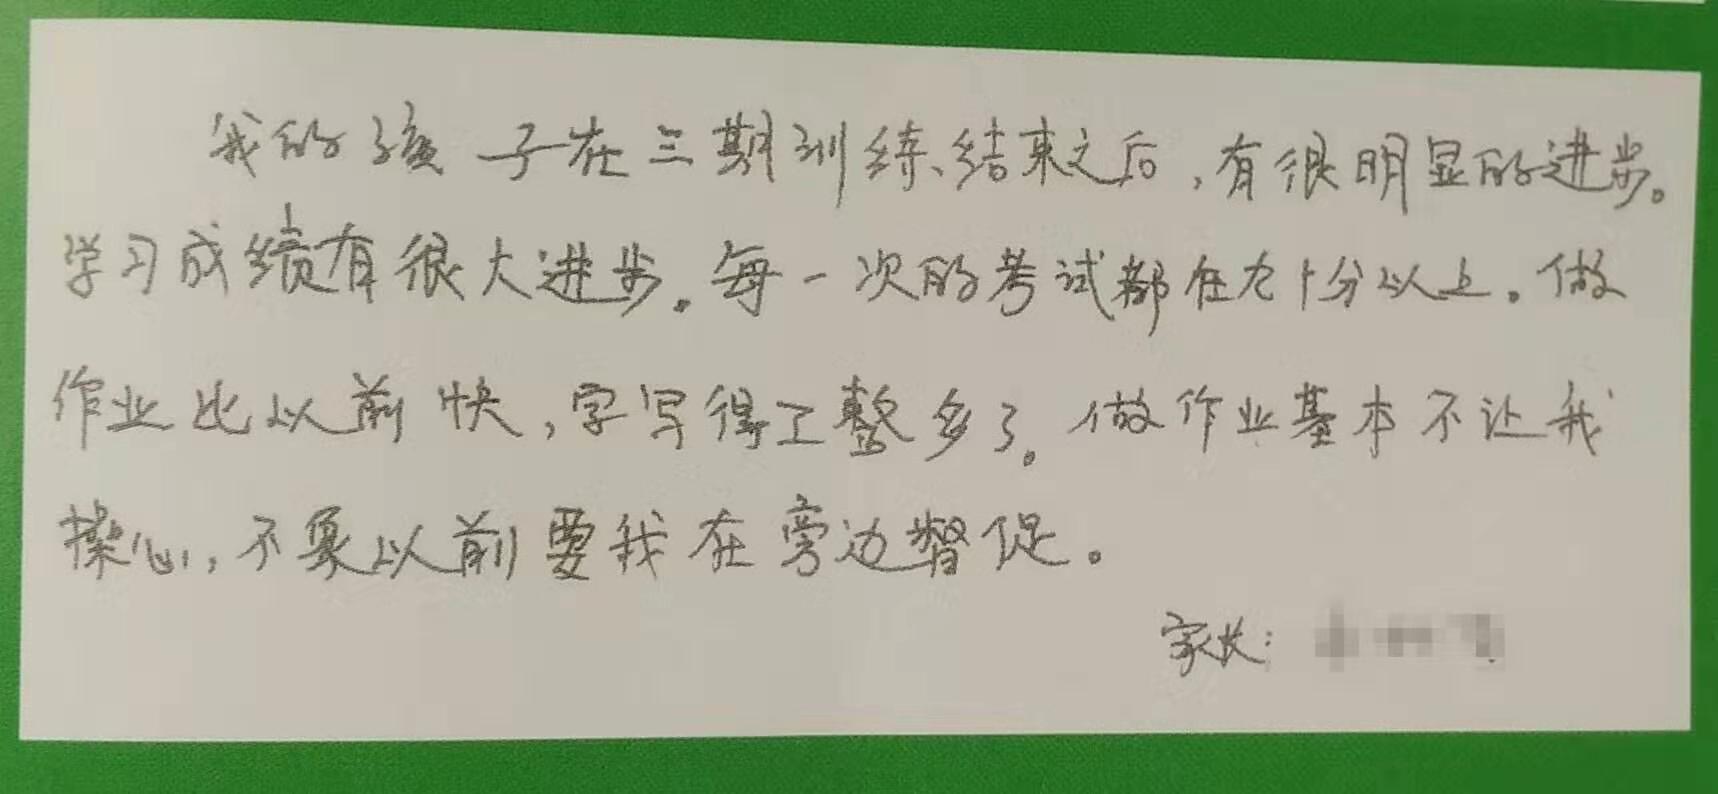 我的孩子在三期训练结束之后，有很明显的进步。
学习成绩有很大进步。每一次的考试都在九十分以上。做
作业比以前快，字写得工整多了。做作业基本不让我
操心，不象以前要我在旁边督促。
家长：